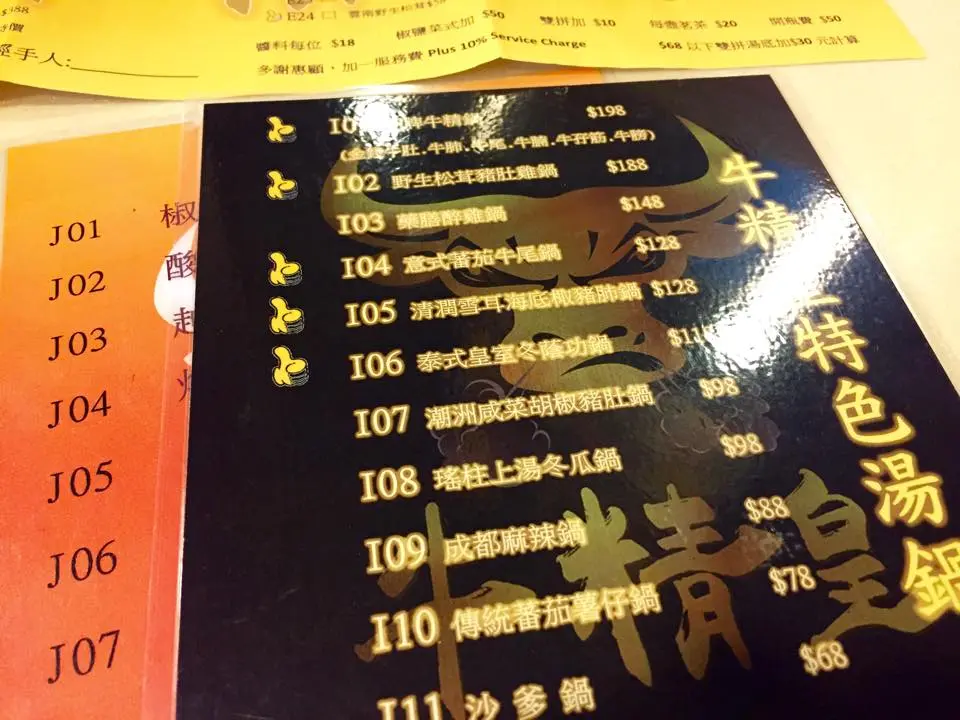 $188
經手人:
E24 □ 雲南野生松茸
醬料每位 $18
椒鹽菜式加 $50
雙拼加 $10
每壺茗茶 $20
開瓶費 $50
多謝惠顧,加一服務費 Plus 10% Service Charge
$68 以下雙拼湯底加$30 元計算
牛精
特色湯鍋
牛精皇
牛精鍋 $198
牛肚.牛肺.牛尾.牛腩.牛孖筋.牛膀)
I02 野生松茸豬肚雞鍋 $188
I03 藥膳醉雞鍋 $148
I04 意式蕃茄牛尾鍋 $128
I05 清潤雪耳海底椰豬肺鍋 $128
I06 泰式皇室冬蔭功鍋
I07 潮洲咸菜胡椒豬肚鍋 $98
I08 瑤柱上湯冬瓜鍋 $98
I09 成都麻辣鍋 $88
I10 傳統蕃茄薯仔鍋 $78
I11 沙爹鍋 $68
J01 椒
J02 酸
J03
J04
J05
J06
J07